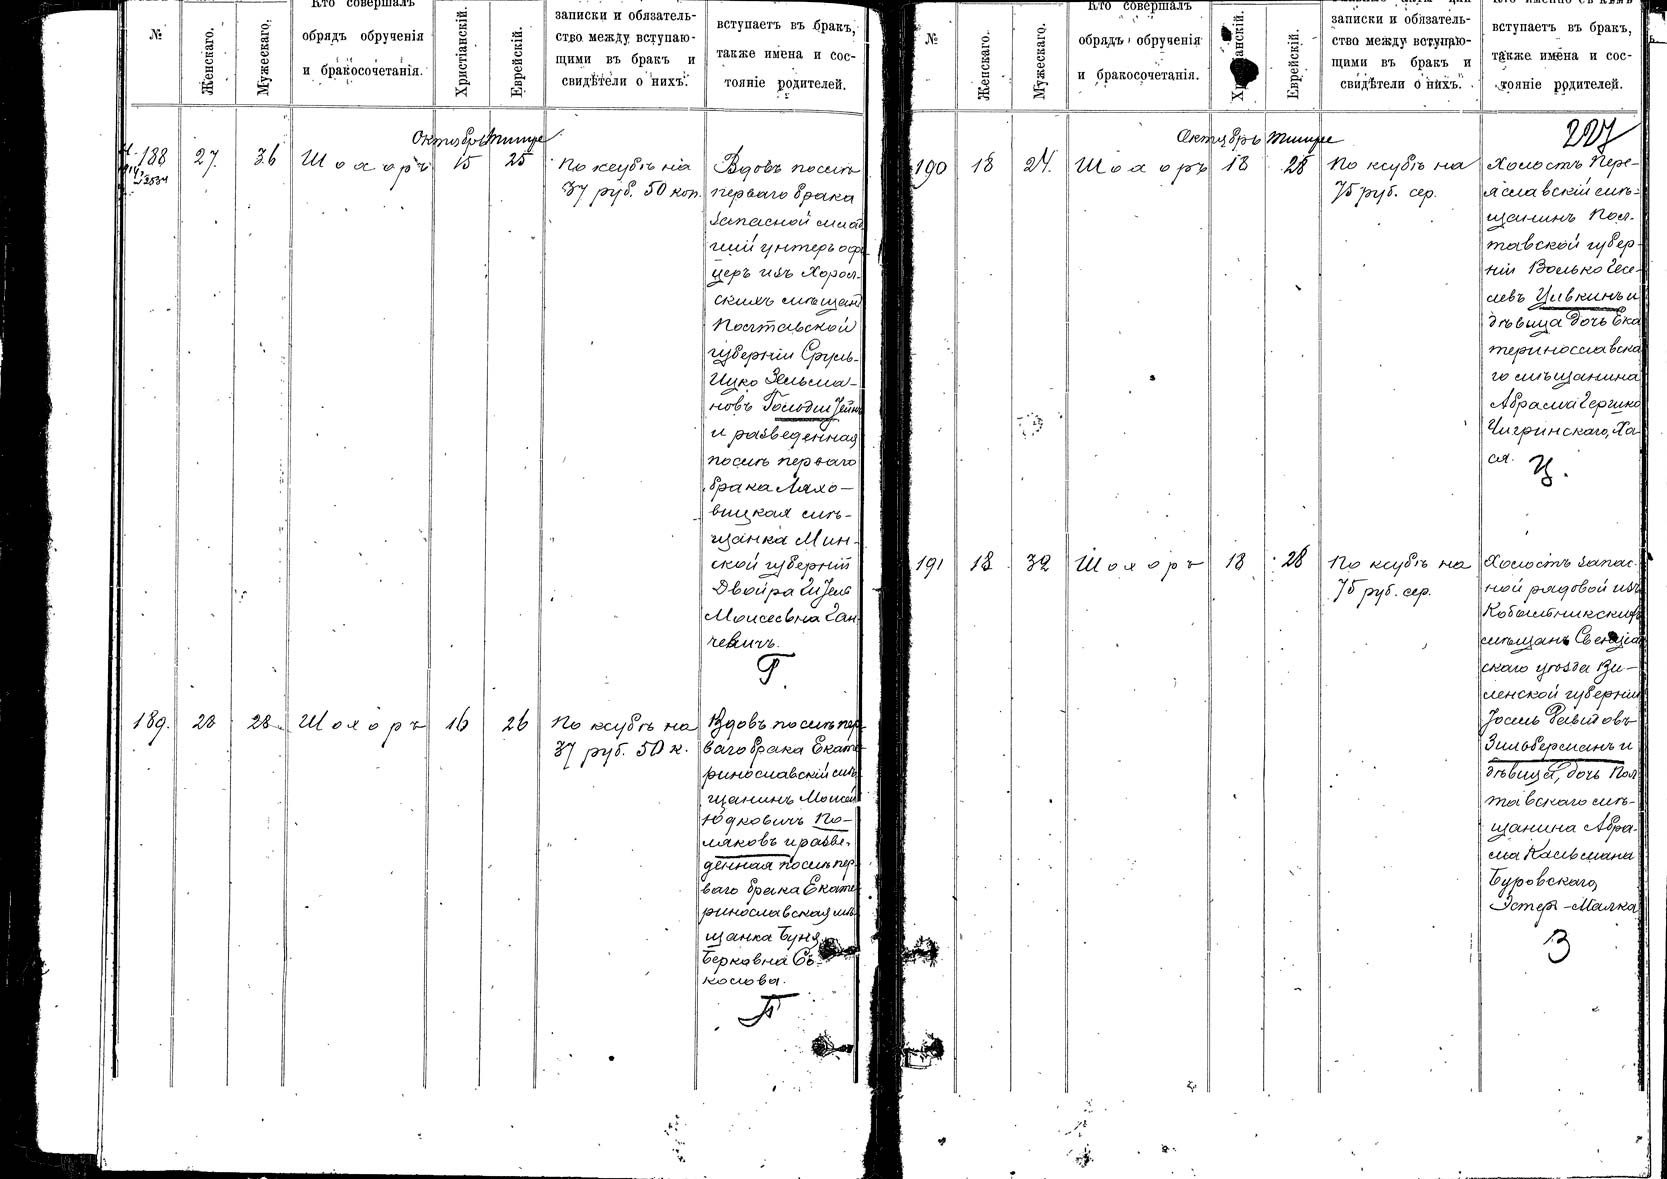 №
Женскаго.
Мужескаго.
Кто совершалъ
обрядъ обрученія
и бракосочетанія.
Христіанскій.
Еврейскій.
записки и обязатель-
ство между вступаю-
щими въ бракъ и
свидѣтели о нихъ.
вступаетъ въ бракъ,
также имена и сос-
тояніе родителей.
Октябрь Тишре
188
27.
36
Шохоръ
15
25
По ксубѣ на
37 руб. 50 коп.
Вдовъ послѣ
перваго брака
запасной млад
шій унтеръ офи
церъ изъ Хороль
скихъ мѣщанъ
Полтавской
губерніи Сруль-
Ицко Зельма-
новъ Гольдштейнъ
и разведенная
послѣ перваго
брака Ляхо-
вицкая мѣ-
щанка Мин-
ской губерніи
Двойра
Моисеевна Ган-
чевичъ.
Г
189.
28
28
Шохоръ
16
26
По ксубѣ на
37 руб. 50 к.
Вдовъ послѣ пер
ваго брака Екате
ринославскій мѣ
щанинъ Моисей
Юдковичъ По-
ляковъ и разве-
денная послѣ пер
ваго брака Екате
ринославская мѣ
щанка Буня
Берковна Со-
колова.
П
№
Женскаго.
Мужескаго.
Кто совершалъ
обрядъ обрученія
и бракосочетанія.
Еврейскій.
записки и обязатель-
ство между вступаю-
щими въ бракъ и
свидѣтели о нихъ.
вступаетъ въ бракъ,
также имена и сос-
тояніе родителей.
227
Октябрь Тишре
190
18
24.
Шохоръ
18
28
По ксубѣ на
75 руб. сер.
Холостъ Пере-
яславскій мѣ-
щанинъ Пол-
тавской губер-
ніи Волько Гесе-
левъ Цивкинъ и
дѣвица дочь Ека
теринославска
го мѣщанина
Абрама Гершко
Чигринскаго, Ха-
ся.
Ц.
191
18
32
Шохоръ
18
28
По ксубѣ на
75 руб. сер.
Холостъ запас-
ной рядовой изъ
Кобыльникскихъ
мѣщанъ Свенцян
скаго уѣзда Ви-
ленской губерніи
Іосель
Зильберманъ и
дѣвица, дочь Пол
тавскаго мѣ-
щанина Абра-
ма Кальмана
Буровскаго,
Эстеръ-Малка
З